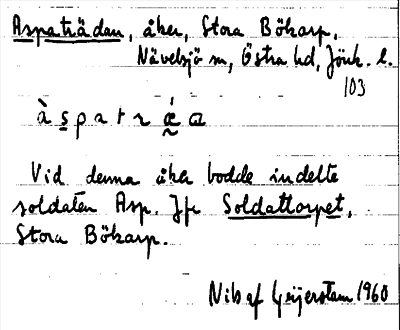 Aspaträdan, åker, Stora Bökarp,
Nävelsjö sn, Östra hd, Jönk. l.
103
à s p a t r ǽ a
Vid denna åker bodde indelte
soldaten Asp. Jfr Soldattorpet,
Stora Bökarp.
Nils af Geijerstam 1960